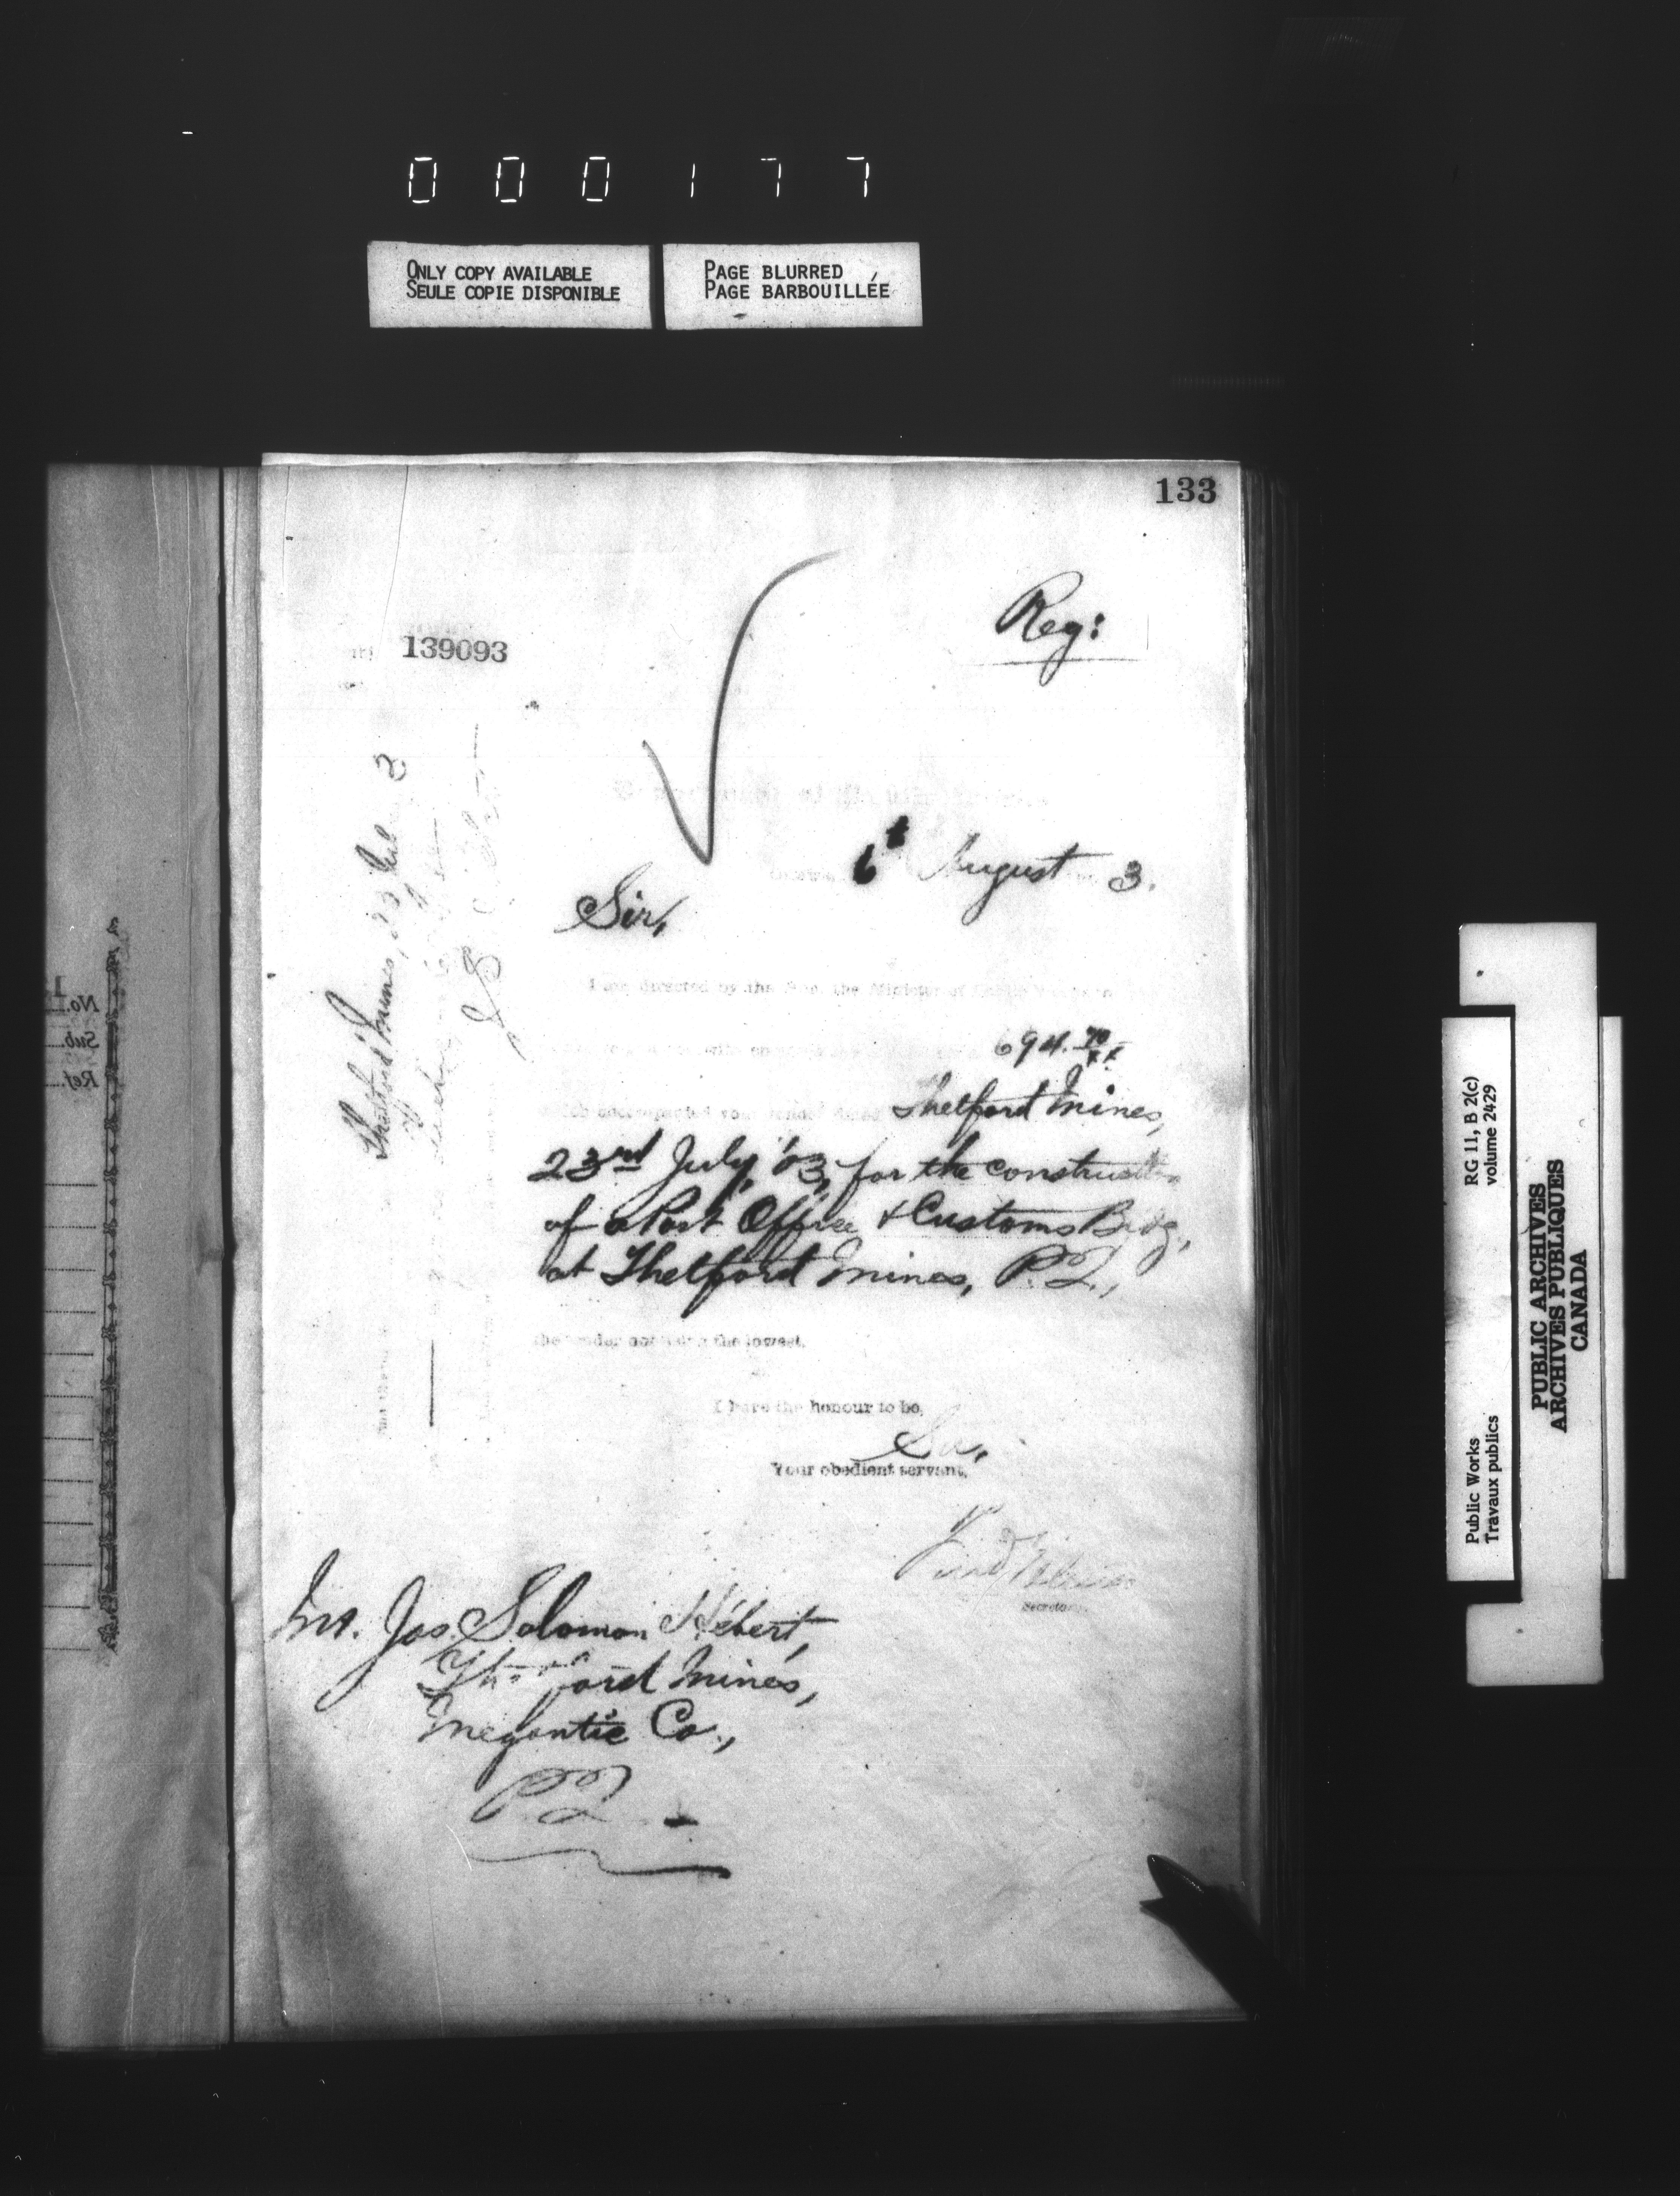 000177
ONLY COPY AVAILABLE
SEULE COPIE DISPONIBLE
PAGE BLURRED
PAGE BARBOUILLÉE
133
Reg:
139093
6t August 3.
Sir,
I am directed by the Hon. the Minister of
694.70
which accompanied your tender dated Thetford Mines,
23rd July, '03, for the construction
of a Post Office & Customs Bldg,
at Thetford Mines, P.Q.,
the tender not being the lowest.
I have the honour to be,
Sir,
Your obedient servant,
Secretary.
Mr. Jos. Solomon Hébert,
Thetford Mines,
Megantic Co.,
P.Q.
Thetford Mines, 23 Jul 3
No.
Sub.
Ref.
RG 11, B 2(c)
volume 2429
Public Works
Travaux publics
PUBLIC ARCHIVES
ARCHIVES PUBLIQUES
CANADA